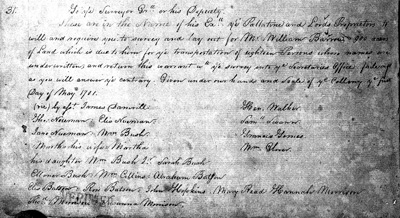 31. To ye Surveyor Gen.ll or his Deputy
These are in the Name of his Exc.y ye Pallatine and Lords Proprietors to
will and require you to survey and lay out for Mr. William Barrow 900 acres
of Land which is due to him for ye transportation of eighteen Persons whose names are
underwritten and return this warrant wth ye survey unto ye Secretaries Office
as you will answer ye contrary. Given under our hands and Seale of ye Collony ye first
Day of May 1701.
(viz) by Capt. James Sanwill
Tho. Newman Eliz Newman
San. Newman Wm Bush
Martha his wife Martha
his daughter Wm Bush Jr. Sarah Bush
Ellonor Bush Wm Collins Abraham Batson
Eliz Batson John Hopkins, Mary Read Hannah Morrison
Hen. Walker
Francis Tomes
Wm Glover